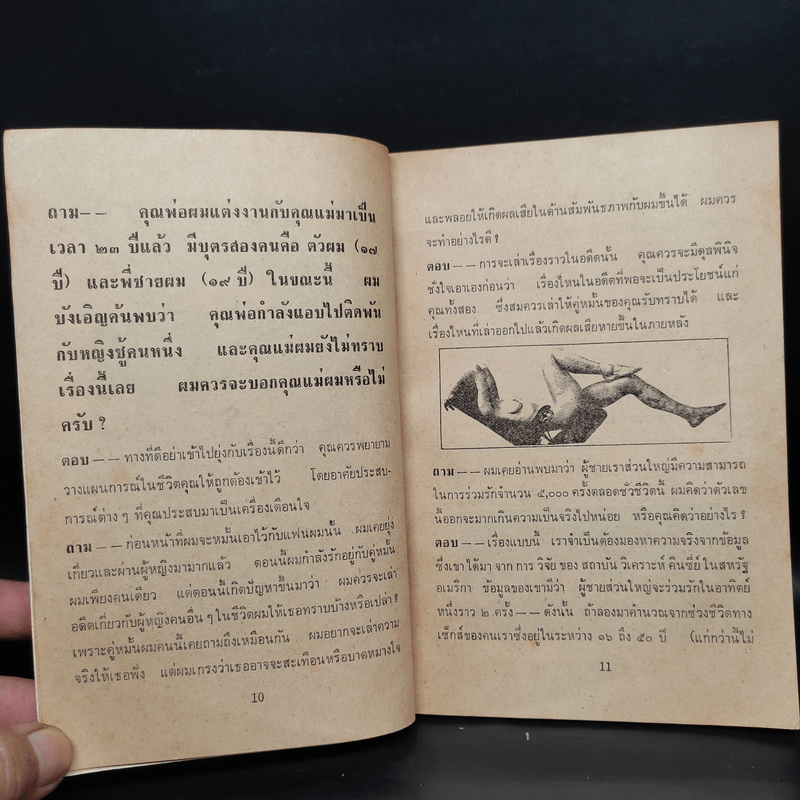 ถาม-- คุณพ่อผมแต่งงานกับคุณแม่มาเป็น
เวลา ๒๓ ปีแล้ว มีบุตรสองคนคือ ตัวผม (๑๗
ปี) และพี่ชายผม (๑๙ ปี) ในขณะนี้ ผม
บังเอิญค้นพบว่า คุณพ่อกำลังแอบไปติดพัน
กับหญิงชู้คนหนึ่ง และคุณแม่ผมยังไม่ทราบ
เรื่องนี้เลย ผมควรจะบอกคุณแม่ผมหรือไม่
ครับ ?
ตอบ--ทางที่ดีอย่าเข้าไปยุ่งกับเรื่องนี้ดีกว่า คุณควรพยายาม
วางแผนการณ์ในชีวิตคุณให้ถูกต้องเข้าไว้ โดยอาศัยประสบ-
การณ์ต่าง ๆ ที่คุณประสบมาเป็นเครื่องเตือนใจ
ถาม--ก่อนหน้าที่ผมจะหมั้นเอาไว้กับแฟนผมนั้น ผมเคยยุ่ง
เกี่ยวและผ่านผู้หญิงมามากแล้ว ตอนนี้ผมกำลังรักอยู่กับคู่หมั้น
ผมเพียงคนเดียว แต่ตอนนี้เกิดปัญหาขึ้นมาว่า ผมควรจะเล่า
อดีตเกี่ยวกับผู้หญิงคนอื่น ๆ ในชีวิตผมให้เธอทราบบ้างหรือเปล่า ?
เพราะคู่หมั้นผมคนนี้เคยถามถึงเหมือนกัน ผมอยากจะเล่าความ
จริงให้เธอฟัง แต่ผมเกรงว่าเธออาจจะสะเทือนหรือบาดหมางใจ
10
และพลอยให้เกิดผลเสียในด้านสัมพันธภาพกับผมขึ้นได้ ผมควร
จะทำอย่างไรดี ?
ตอบ--การจะเล่าเรื่องราวในอดีตนั้น คุณควรจะมีดุลพินิจ
ชั่งใจเอาเองก่อนว่า เรื่องไหนในอดีตที่พอจะเป็นประโยชน์แก่
คุณทั้งสอง ซึ่งสมควรเล่าให้คู่หมั้นของคุณรับทราบได้ และ
เรื่องไหนที่เล่าออกไปแล้วเกิดผลเสียหายขึ้นในภายหลัง
ถาม--ผมเคยอ่านพบมาว่า ผู้ชายเราส่วนใหญ่มีความสามารถ
ในการร่วมรักจำนวน ๕,๐๐๐ ครั้งตลอดชั่วชีวิตนี้ ผมคิดว่าตัวเลข
นี้ออกจะมากเกินความเป็นจริงไปหน่อย หรือคุณคิดว่าอย่างไร ?
ตอบ--เรื่องแบบนี้ เราจำเป็นต้องมองหาความจริงจากข้อมูล
ซึ่งเขาได้มา จาก การ วิจัย ของ สถาบัน วิเคราะห์ คินซี่ย์ ในสหรัฐ
อเมริกา ข้อมูลของเขามีว่า ผู้ชายส่วนใหญ่จะร่วมรักในอาทิตย์
หนึ่งราว ๒ ครั้ง--ดังนั้น ถ้าลองมาคำนวณจากช่วงชีวิตทาง
เซ็กส์ของคนเราซึ่งอยู่ในระหว่าง ๑๖ ถึง ๕๐ ปี (แก่กว่านี้ไม่
11